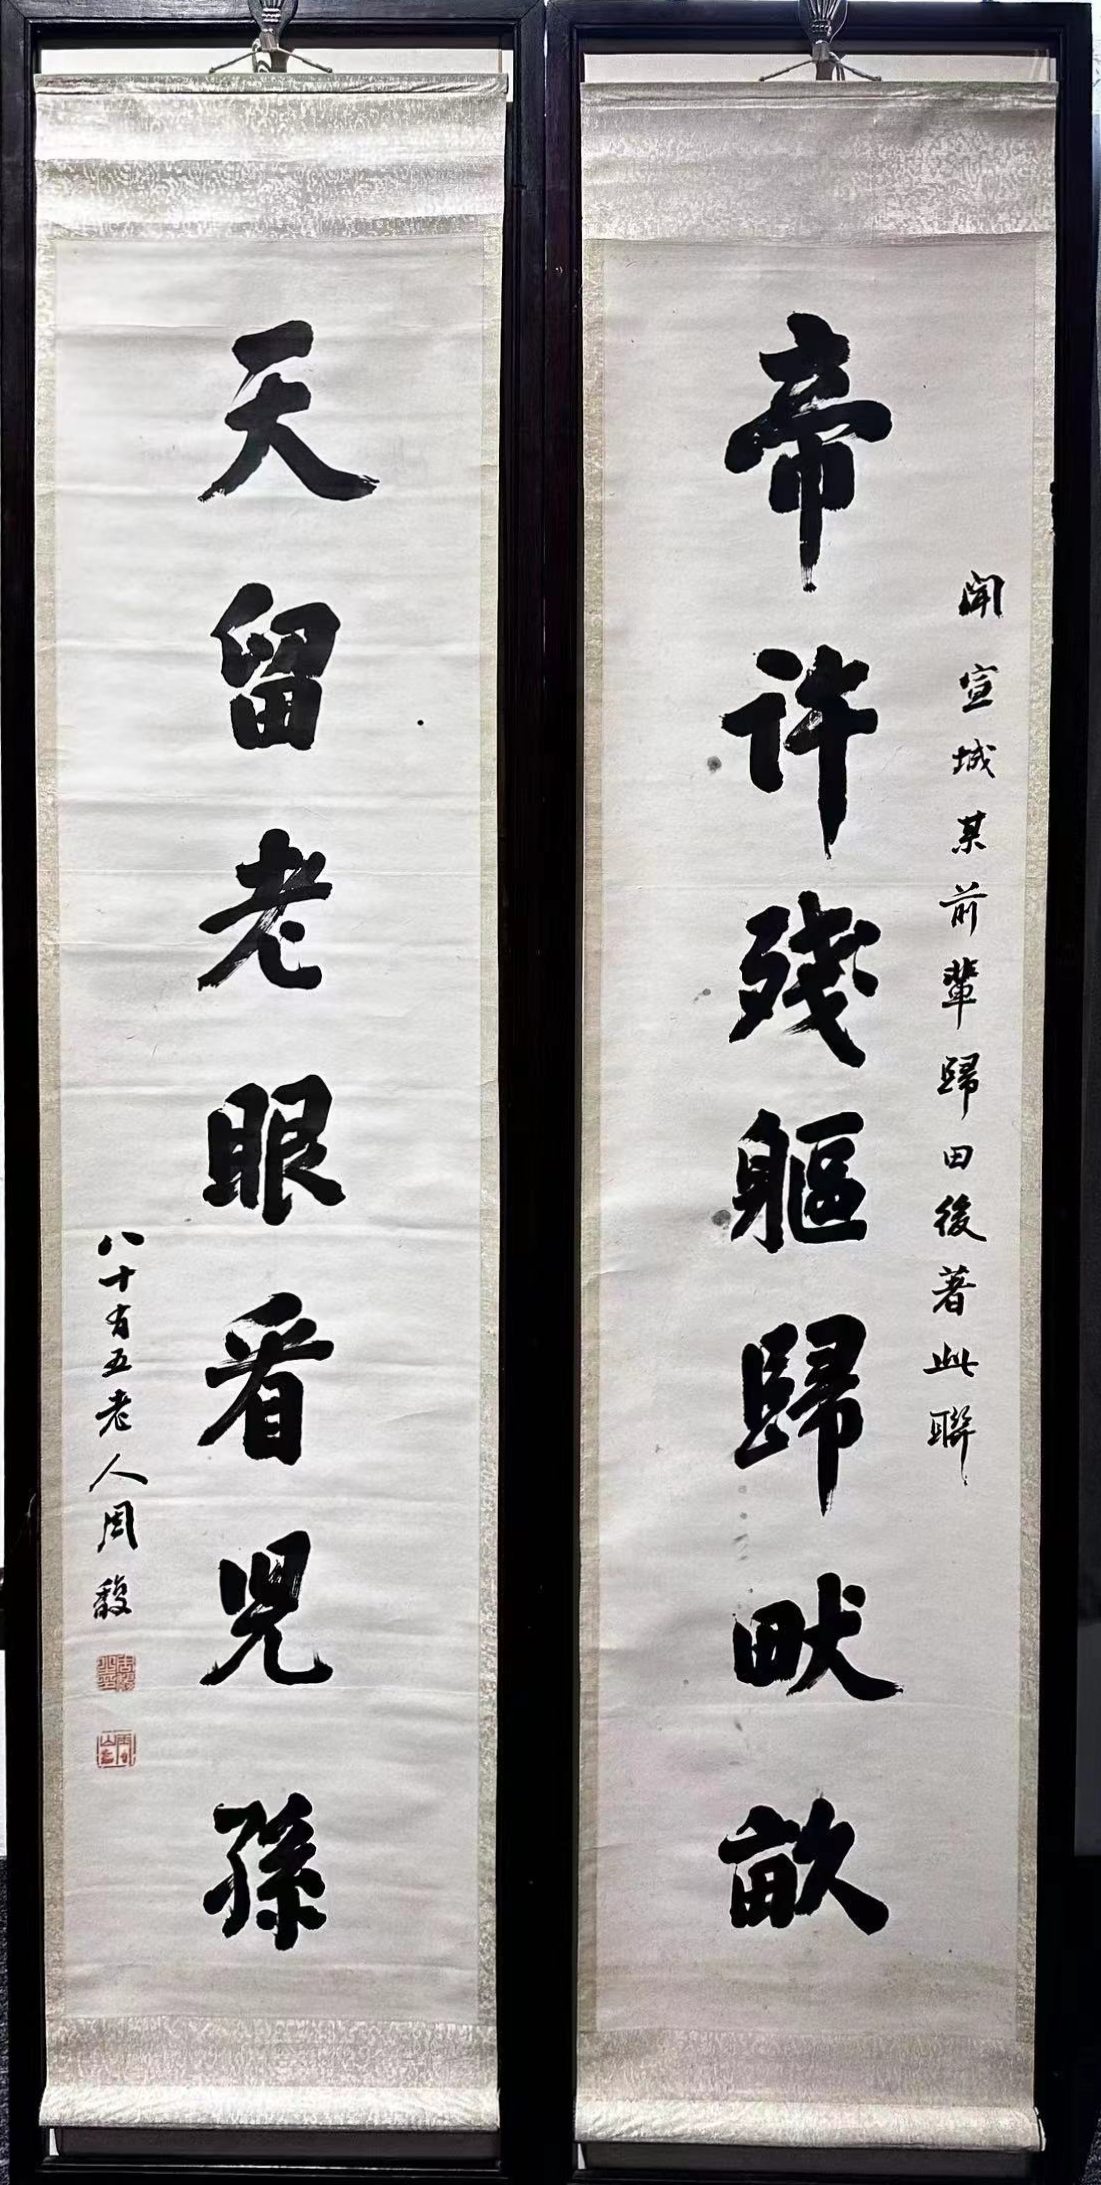 帝許殘軀歸畎畝
聞宣城某前輩歸田後著此聯
天留老眼看兒孫
八十有五老人周馥